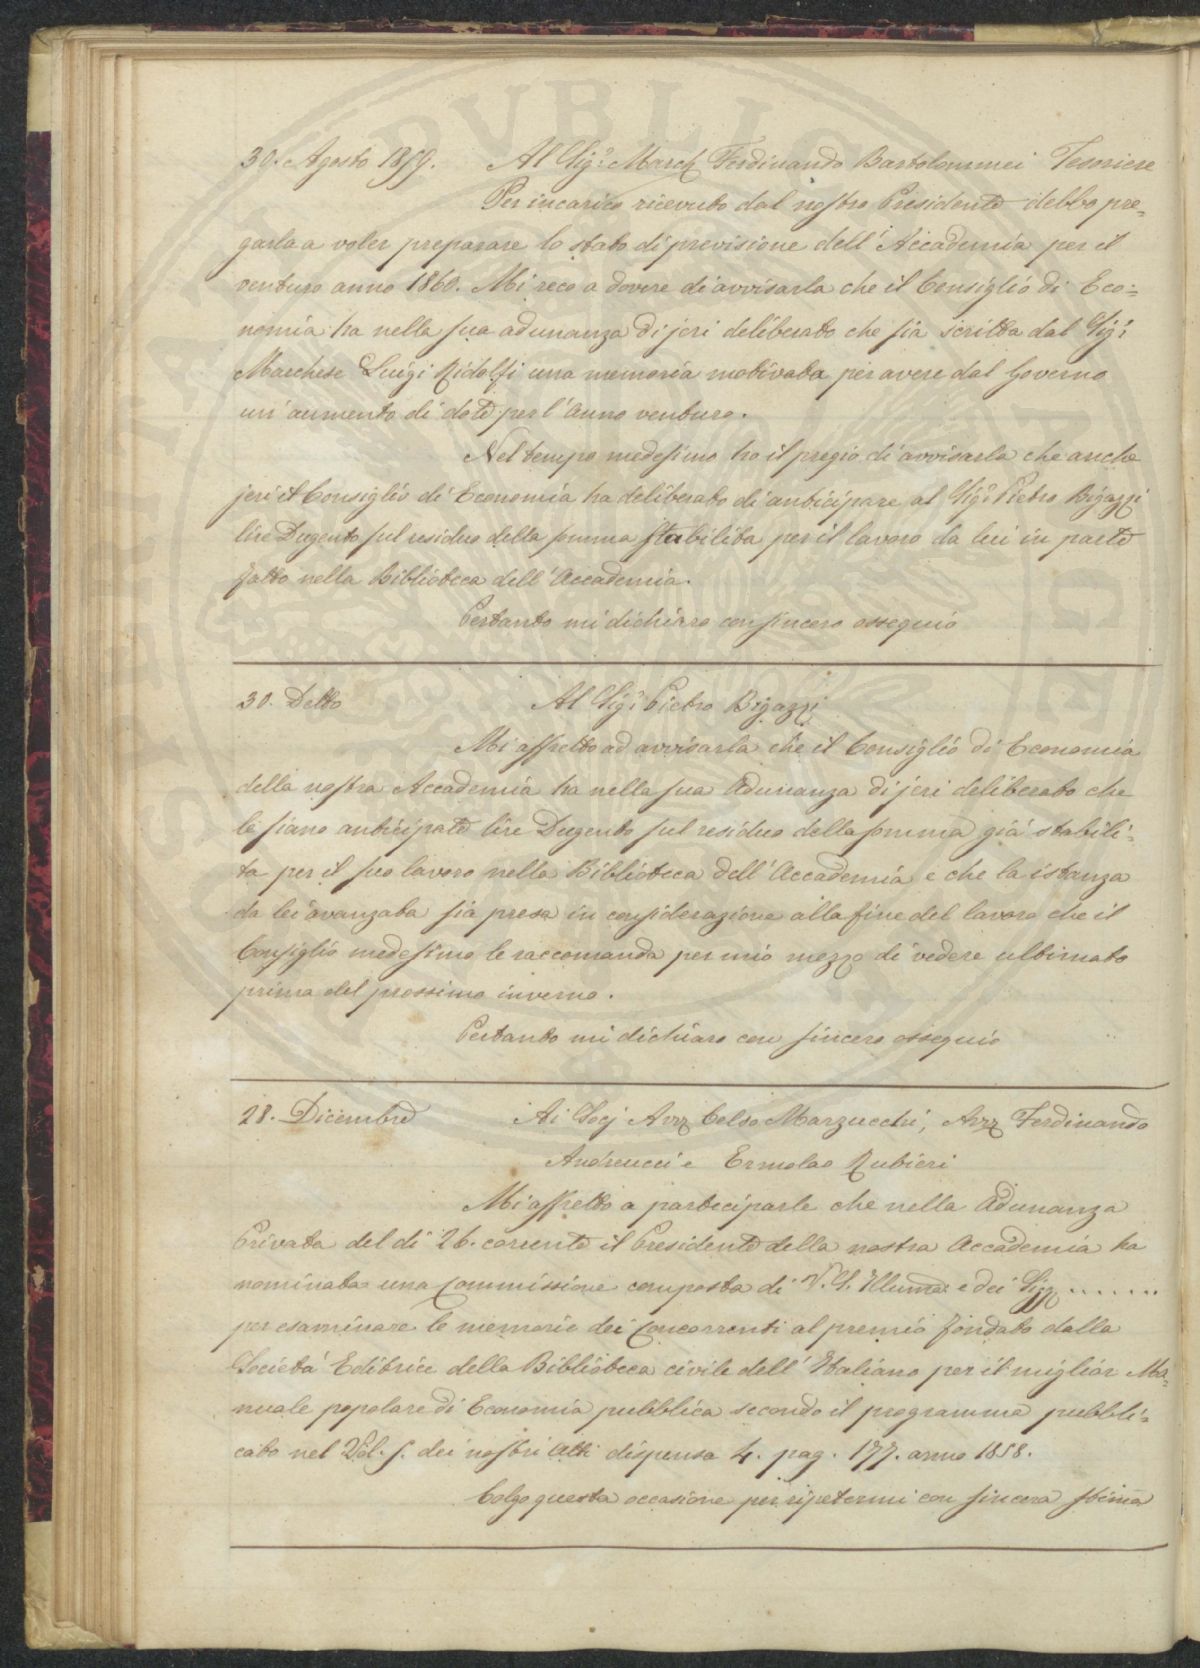 30. Agosto 1859. Al Sig.r March Ferdinando Bartolommei Tesoriere
Per incarico ricevuto dal nostro Presidente debbo pre=
garla a voler preparare lo stato di previsione dell'Accademia per il
venturo anno 1860. Mi reco a dovere di avvisarla che il Consiglio di Eco=
nomia ha nella sua adunanza di jeri deliberato che sia scritta dal Sig.r
Marchese Luigi Ridolfi una memoria motivata per avere dal Governo
un'aumento di dote per l'anno venturo.
Nel tempo medesimo ho il pregio di avvisarla che anche
jeri il Consiglio di Economia ha deliberato di anticipare al Sig.r Pietro Bigazzi
lire Dugento sul residuo della somma stabilita per il lavoro da lui in parte
fatto nella Biblioteca dell'Accademia.
Pertanto mi dichiaro con sincero ossequio
30. Detto Al Sig.r Pietro Bigazzi
Mi affretto ad avvisarla che il Consiglio di Economia
della nostra Accademia ha nella sua Adunanza di jeri deliberato che
le siano anticipate lire Dugento sul residuo della somma già stabili=
ta per il suo lavoro nella Biblioteca dell'Accademia e che la istanza
da lei avanzata sia presa in considerazione alla fine del lavoro che il
Consiglio medesimo le raccomanda per mio mezzo di vedere ultimato
prima del prossimo inverno.
Pertanto mi dichiaro con sincero ossequio
28. Dicembre Ai Socj Avv. Celso Marzucchi, Avv. Ferdinando
Andreucci e Ermolao Rubieri
Mi affretto a parteciparle che nella Adunanza
Privata del dì 26. corrente il Presidente della nostra Accademia ha
nominata una Commissione composta di V. S. Illuma: e dei Sigg.......
per esaminare le memorie dei Concorrenti al premio fondato dalla
Società Editrice della Biblioteca civile dell'Italiano per il miglior Ma=
nuale popolare di Economia pubblica secondo il programma pubbli=
cato nel Vol. 5. dei nostri Atti dispensa 4. pag. 177. anno 1858.
Colgo questa occasione per ripetermi con sincera stima